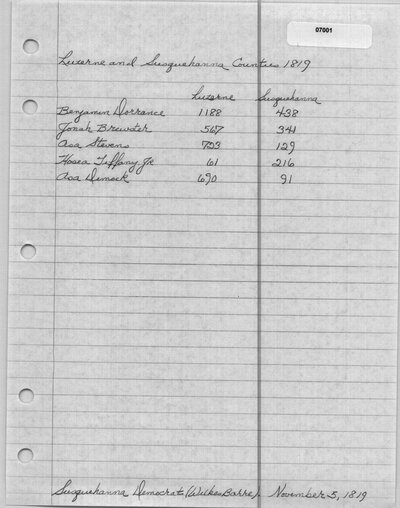 07001
Luzerne and Susquehanna Counties 1819
Luzerne Susquehanna
Benjamin Dorrance 1188 438
Jonah Brewster 567 341
Asa Stevens 703 129
Hosea Tiffany Jr 61 216
Asa Dimock 690 91
Susquehanna Democrat (Wilkes Barre). November 5, 1819